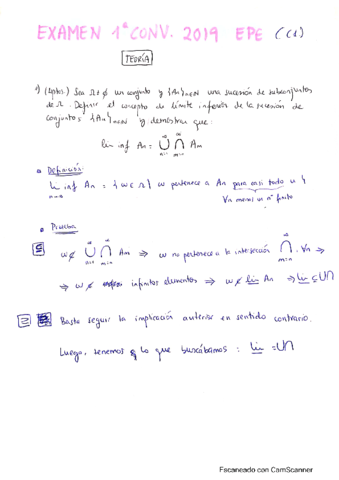 EXAMEN 1ª CONV. 2019 EPE (C1)
TEORÍA
1) (4ptos.) Sea Ω≠∅ un conjunto y {An}n∈N una sucesión de subconjuntos
de Ω. Definir el concepto de límite inferior de la sucesión de
conjuntos {An}n∈N y demostrar que:
lim inf An = ∞⋃n=1 ∞⋂m=n Am
Definición:
lim inf An = {ω∈Ω / ω pertenece a An para casi todo n}
n→∞
∀n menos un nº finito
Prueba
⊆ ω∉ ∞⋃n=1 ∞⋂m=n Am ⇒ ω no pertenece a la intersección ∞⋂m=n ∀n ⇒
⇒ ω∉ infinitos elementos ⇒ ω∉ lim An ⇒ lim ⊆ ⋃⋂
⊇ Basta seguir la implicación anterior en sentido contrario.
Luego, tenemos lo que buscábamos: lim = ⋃⋂
Escaneado con CamScanner